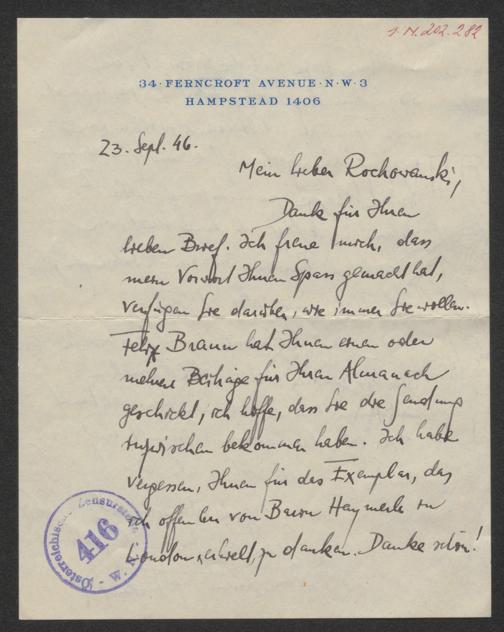 I.N. 202.282
34·FERNCROFT AVENUE·N·W·3
HAMPSTEAD 1406
23. Sept. 46.
Mein lieber Rochowanski,
Dank für Ihren
lieben Brief. Ich freue mich, dass
mein Vorwort Ihnen Spass gemacht hat,
verfügen Sie darüber, wie immer Sie wollen.
Felix Braun hat Ihnen einen oder
mehrere Beiträge für Ihren Almanach
geschickt, ich hoffe, dass Sie die Sendung
inzwischen bekommen haben. Ich habe
vergessen, Ihnen für das Exemplar, das
ich offenbar von Baron Haymerle in
London erhielt, zu danken. Danke schön!
Österreichische Zensurstelle
416